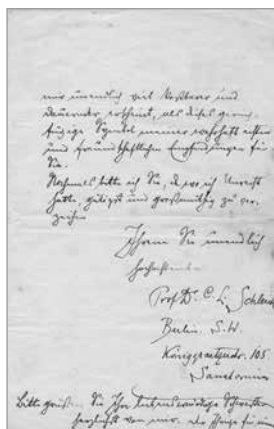 mir unendlich viel kostbarer und
dauernder erscheint, als dieses gering-
fügige Symbol meiner wahrhaft echten
und freundschaftlichen Empfindungen für
Sie.
Nochmals bitte ich Sie, da wo ich Unrecht
hatte, gütigst und großmütig zu ver-
zeihen
Ihrem Sie unendlich
hochachtenden
Prof. Dr. C. L. Schleich
Berlin. S.W.
Königgrätzerstr. 105.
Sanatorium
Bitte grüßen Sie Ihre liebenswürdige Schwester
herzlichst von mir. Die